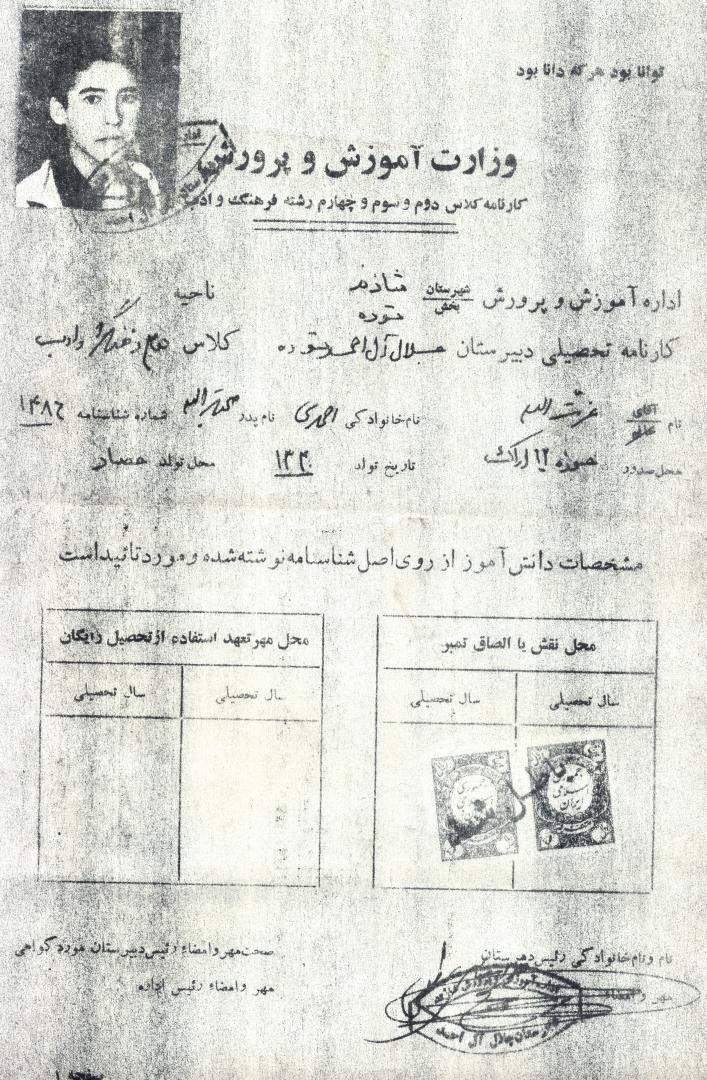 توانا بود هر که دانا بود
وزارت آموزش و پرورش
کارنامه کلاس دوم و سوم و چهارم رشته فرهنگ و ادب
اداره آموزش و پرورش شهرستان بخش شازند توره ناحیه
کارنامه تحصیلی دبیرستان جلال آل احمد توره کلاس فرهنگ و ادب
نام آقای عزت الله نام خانوادگی احمدی نام پدر شماره شناسنامه ۱۴۸۶
محل صدور حوزه ۱۲ اراک تاریخ تولد ۱۳۴۰ محل تولد حصار
مشخصات دانش آموز از روی اصل شناسنامه نوشته شده و مورد تائید است
محل نقش یا الصاق تمبر
سال تحصیلی سال تحصیلی
محل مهر تعهد استفاده از تحصیل رایگان
سال تحصیلی سال تحصیلی
جمهوری اسلامی ایران
باطل شد
نام و نام خانوادگی رئیس دبیرستان
مهر و امضاء
دبیرستان جلال آل احمد
صحت مهر و امضاء رئیس دبیرستان مورد گواهی
مهر و امضاء رئیس اداره
صفحه ۱